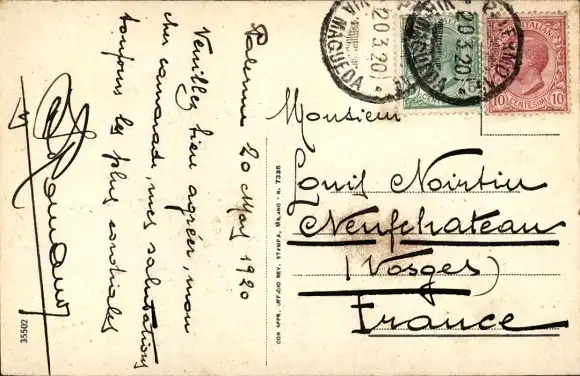 Palerme 20 Mars 1920
Veuillez bien agréer, mon
cher camarade, mes salutations
toujours les plus cordiales
Romano
35502
CON APPR. UFFICIO REV. STAMPA, MILANO - N. 7336
VIA MAQUEDA
20.3.20
PALERMO
20.3.20
10 CENTESIMI 10
Monsieur
Louis Noirtin
Neufchateau
(Vosges)
France